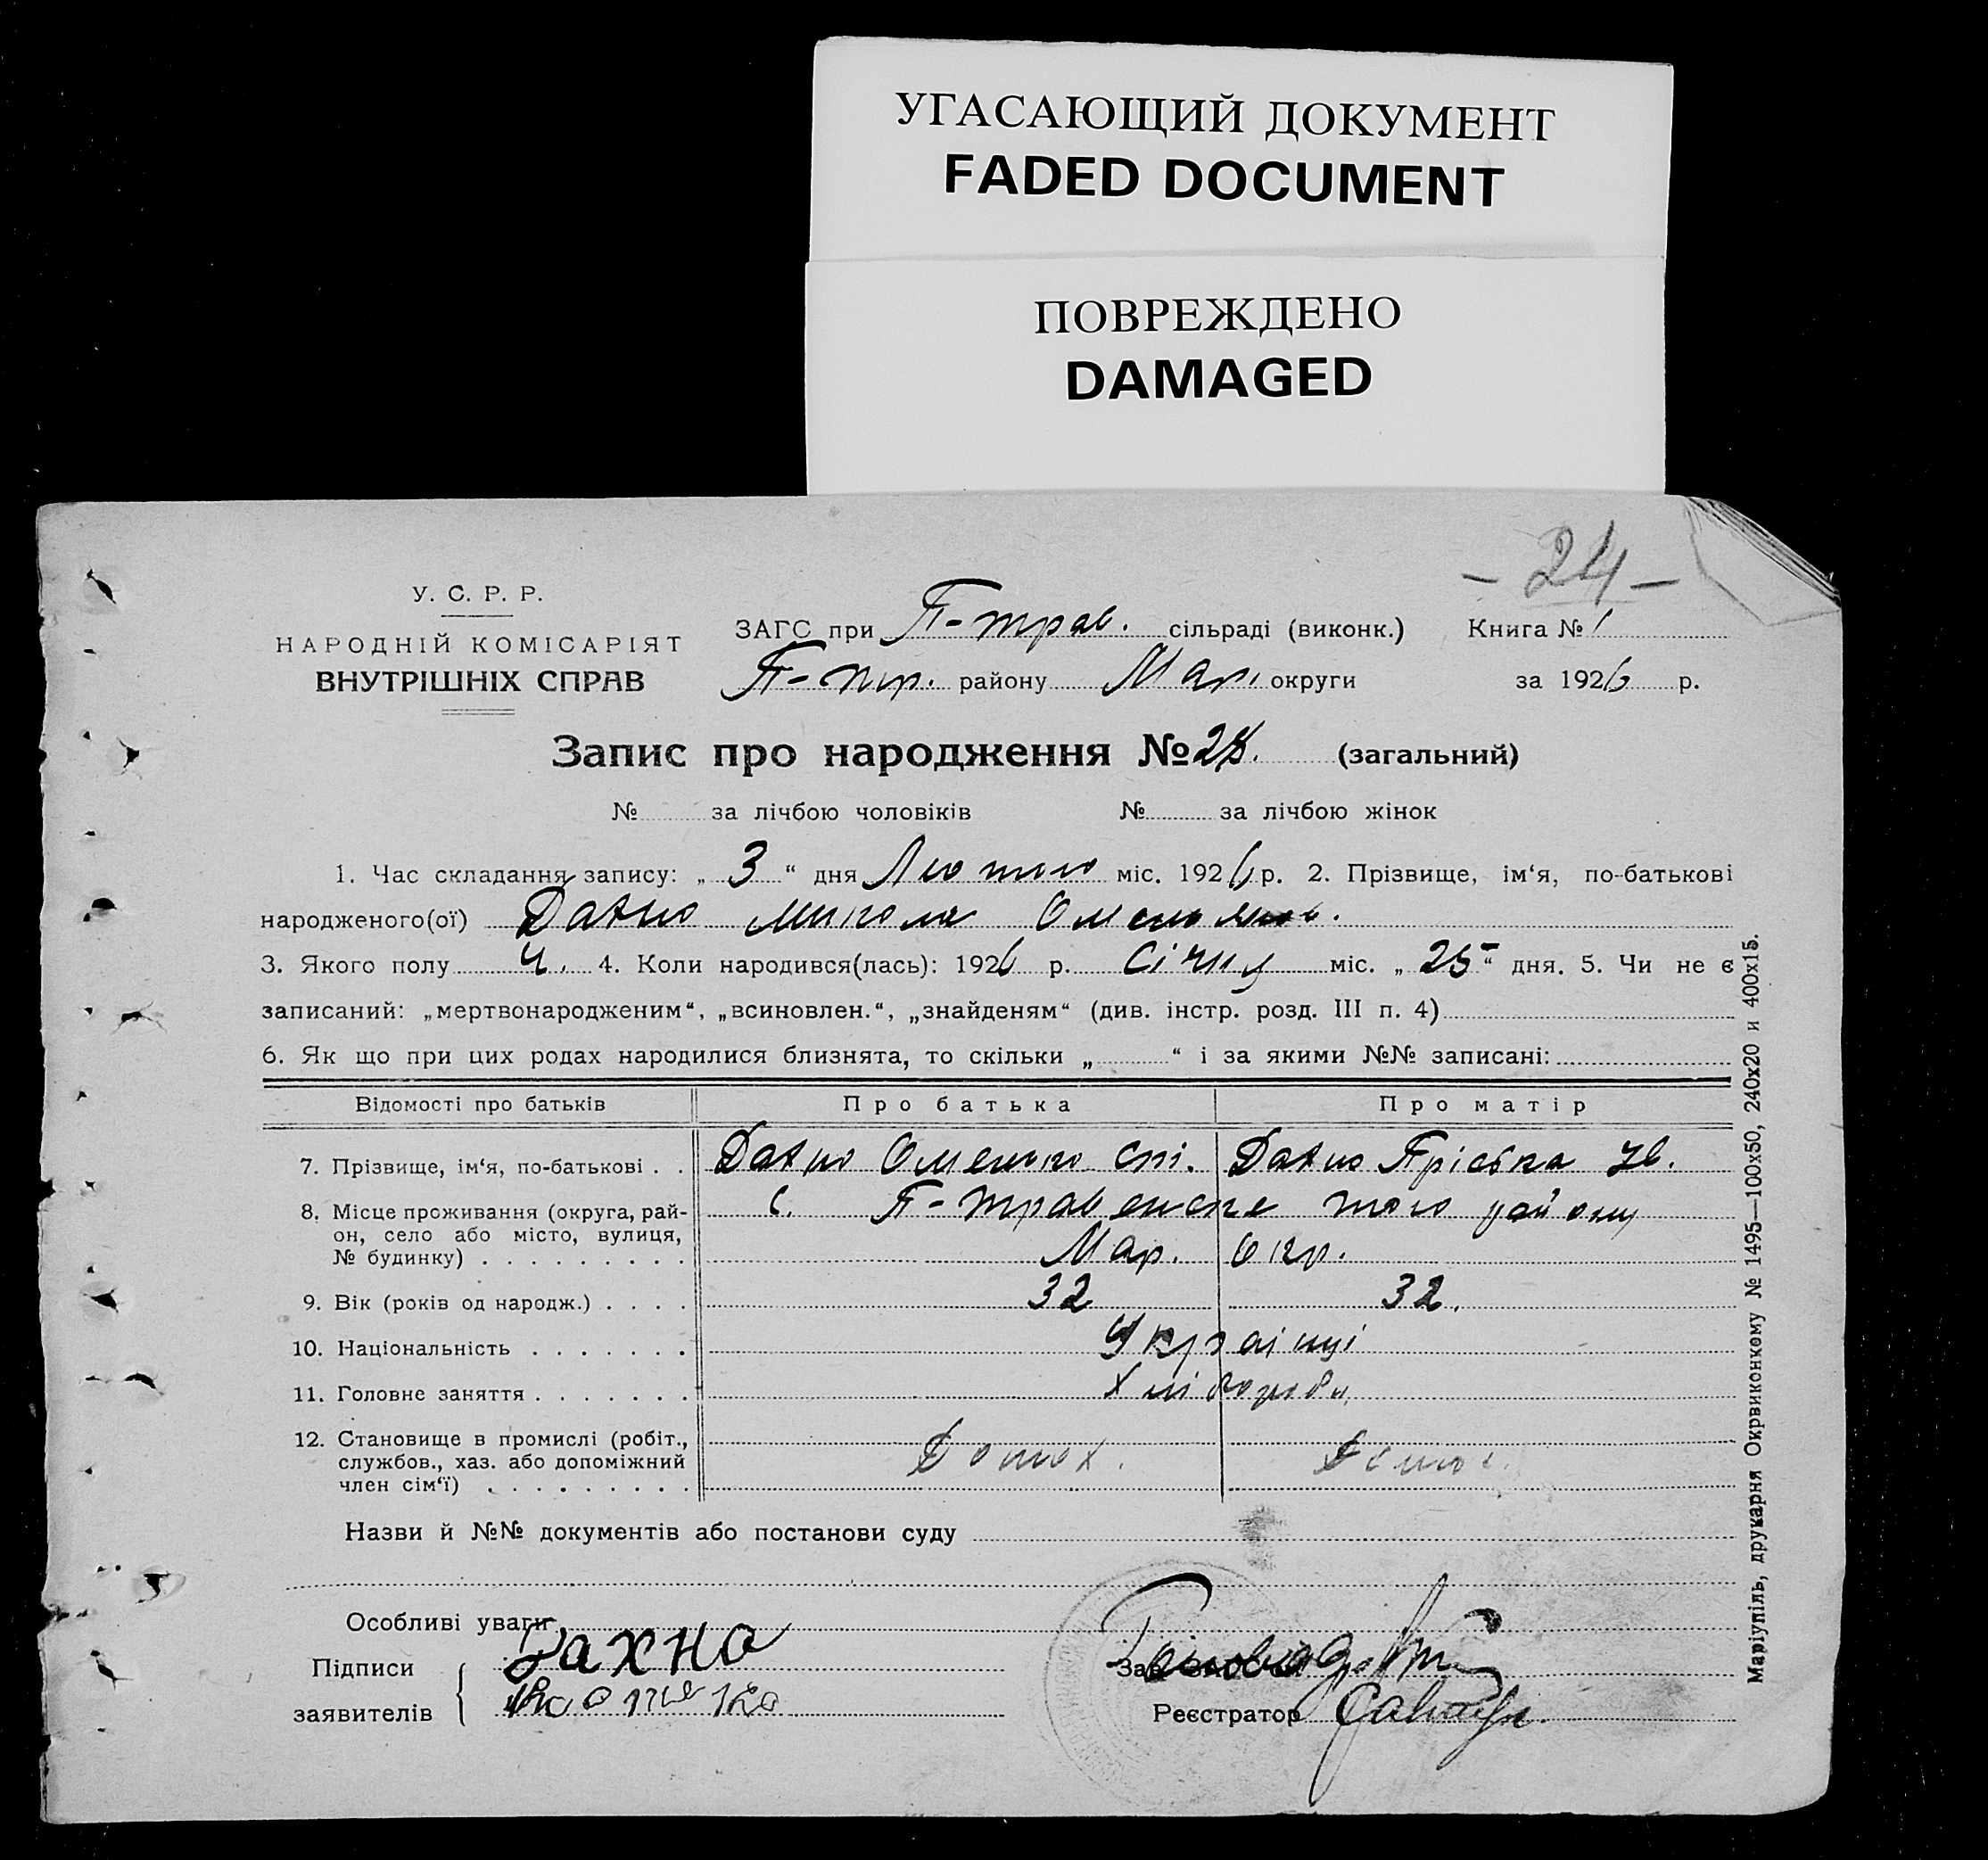 УГАСАЮЩИЙ ДОКУМЕНТ
FADED DOCUMENT
ПОВРЕЖДЕНО
DAMAGED
- 24 -
У. С. Р. Р.
НАРОДНІЙ КОМІСАРІЯТ
ВНУТРІШНІХ СПРАВ
ЗАГС при П-трав. сільраді (виконк.) Книга № 1
П-тр. району Мар. округи за 1926 р.
Запис про народження № 28. (загальний)
№ за лічбою чоловіків № за лічбою жінок
1. Час складання запису: „ 3 “ дня Лютого міс. 1926 р. 2. Прізвище, ім‘я, по-батькові
народженого(ої) Дахно Микола
3. Якого полу Ч. 4. Коли народився(лась): 1926 р. Січня міс. „ 25 “ дня. 5. Чи не є
записаний: „мертвонародженим“, „всиновлен.“, „знайденям“ (див. інстр. розд. III п. 4)
6. Як що при цих родах народилися близнята, то скільки „ “ і за якими №№ записані:
Відомості про батьків Про батька Про матір
7. Прізвище, ім‘я, по-батькові . . Дахно Омелько Дахно Пріська Ів.
8. Місце проживання (округа, рай-
он, село або місто, вулиця,
№ будинку) . . . . . . . . .
с. П-травенске того району
Мар. Окр.
9. Вік (років од народж.) . . . . 32 32.
10. Національність . . . . . . . Українці
11. Головне заняття . . . . . . . Хлібороби
12. Становище в промислі (робіт.,
службов., хаз. або допоміжний
член сім‘ї) . . . . . . . . .
Назви й №№ документів або постанови суду
Особливі уваги
Підписи
заявителів
Дахно
Зав.
Реєстратор
Маріупіль, друкарня Окрвиконкому № 1495—100х50, 240х20 и 400х15.